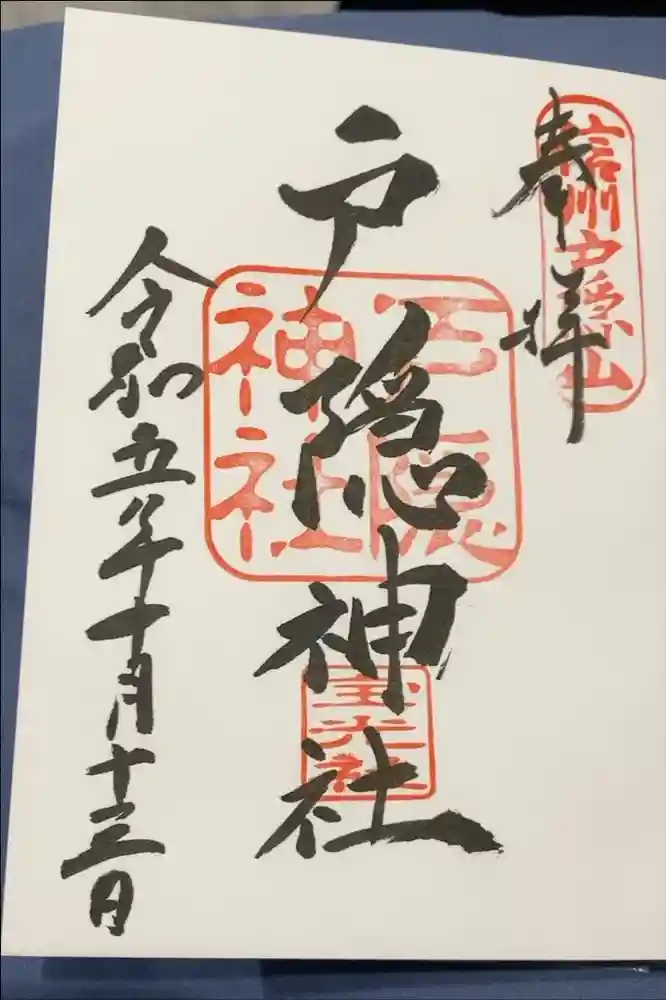 奉拝
信州戸隠山
戸隠神社
戸隠神社
宝光社
令和五年十月十三日